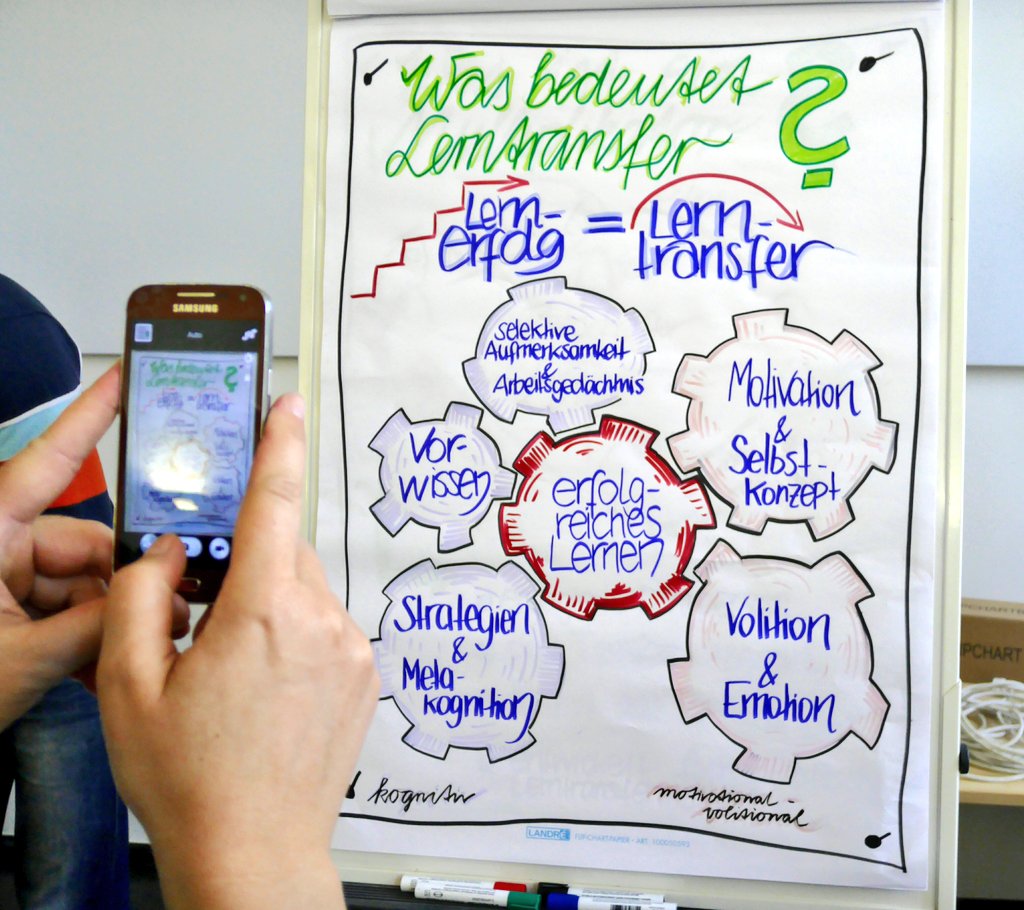 Was bedeutet
Lerntransfer ?
Lern-
erfolg
=
Lern-
transfer
selektive
Aufmerksamkeit
&
Arbeitsgedächtnis
Motivation
&
Selbst-
konzept
Vor-
wissen
erfolg-
reiches
Lernen
Strategien
&
Meta-
kognition
Volition
&
Emotion
kognitiv
motivational-
volitional
LANDRÉ
SAMSUNG
Auto
Was bedeutet
Lerntransfer ?